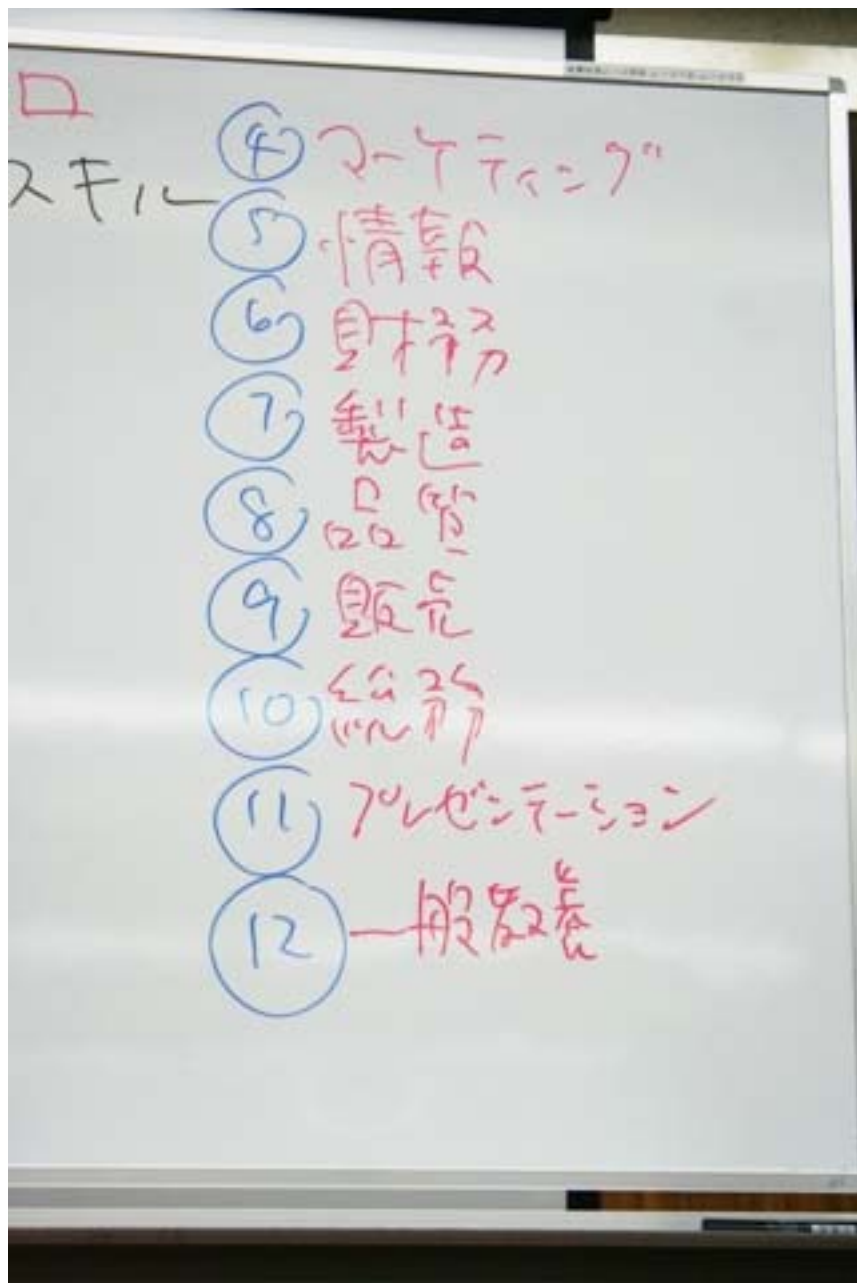 ロ
スキル
④ マーケティング
⑤ 情報
⑥ 財務
⑦ 製造
⑧ 品質
⑨ 販売
⑩ 総務
⑪ プレゼンテーション
⑫ 一般教養